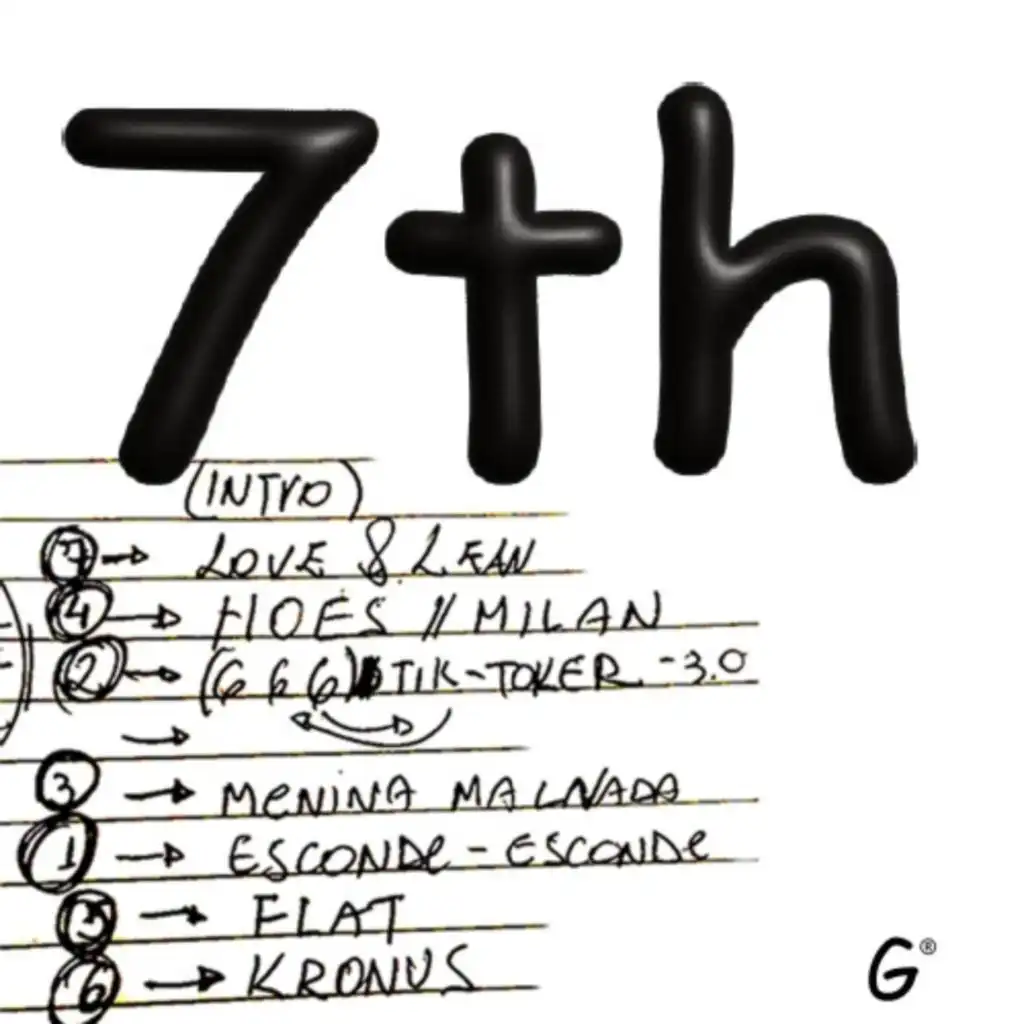 7th
(INTRO)
7 → LOVE & LEAN
4 → HOES // MILAN
2 → (666) TIK-TOKER -3.0
→
3 → MENINA MALVADA
1 → ESCONDE-ESCONDE
5 → FLAT
6 → KRONUS
G®